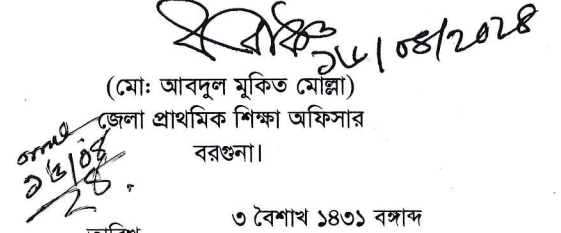 ১৬/০৪/২০২৪
(মো: আবদুল মুকিত মোল্লা)
জেলা প্রাথমিক শিক্ষা অফিসার
বরগুনা।
১৬/০৪/২৪.
৩ বৈশাখ ১৪৩১ বঙ্গাব্দ